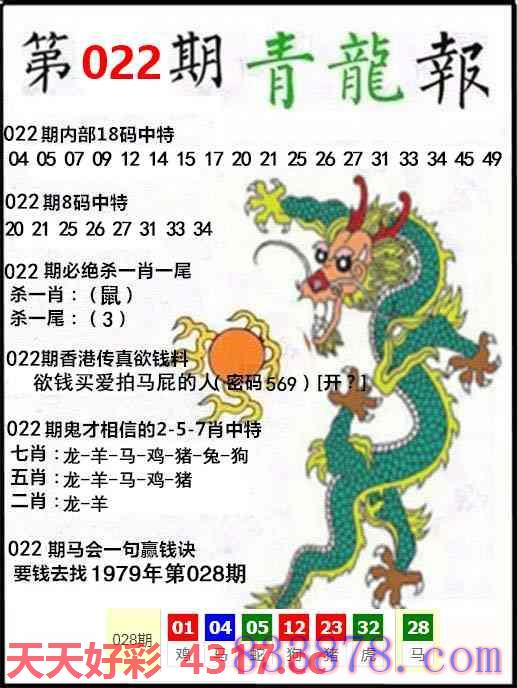 第022期青龍報
022期内部18码中特
04 05 07 09 12 14 15 17 20 21 25 26 27 31 33 34 45 49
022期8码中特
20 21 25 26 27 31 33 34
022期必绝杀一肖一尾
杀一肖:(鼠)
杀一尾:(3)
022期香港传真欲钱料
欲钱买爱拍马屁的人(密码569)[开?]
022期鬼才相信的2-5-7肖中特
七肖:龙-羊-马-鸡-猪-兔-狗
五肖:龙-羊-马-鸡-猪
二肖:龙-羊
022期马会一句赢钱诀
要钱去找1979年第028期
028期 01 04 05 12 23 32 28
鸡 马 蛇 狗 猪 虎 马
天天好彩 4317.cc